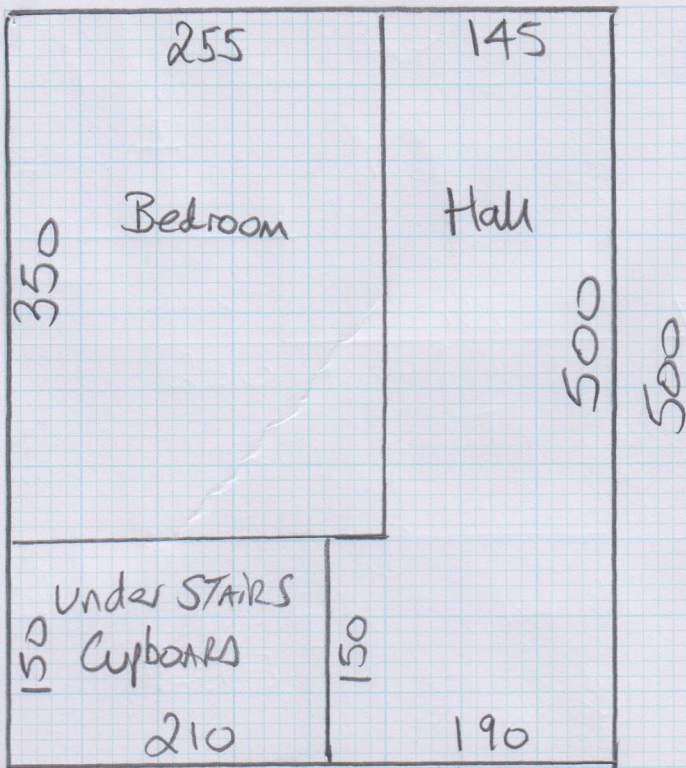 255
145
Bedroom
Hall
350
500
500
Under STAiRS
CupboARD
150
150
210
190